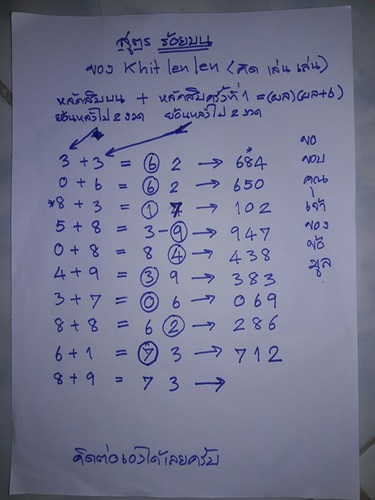 สูตร ร้อยบน
ของ Khit len len (คิด เล่น เล่น)
หลักสิบบน + หลักสิบครั้งที่ 1 = (ผล)(ผล+6)
ย้อนหลังไป 2 งวด ย้อนหลังไป 2 งวด
3 + 3 = 6 2 → 684
0 + 6 = 6 2 → 650
*8 + 3 = 1 7 → 102
5 + 8 = 3 - 9 → 947
0 + 8 = 8 4 → 438
4 + 9 = 3 9 → 383
3 + 7 = 0 6 → 069
8 + 8 = 6 2 → 286
6 + 1 = 7 3 → 712
8 + 9 = 7 3 →
ขอ
ขอบ
คุณ
เจ้า
ของ
ข้อ
มูล
คิดต่อเองได้เลยครับ